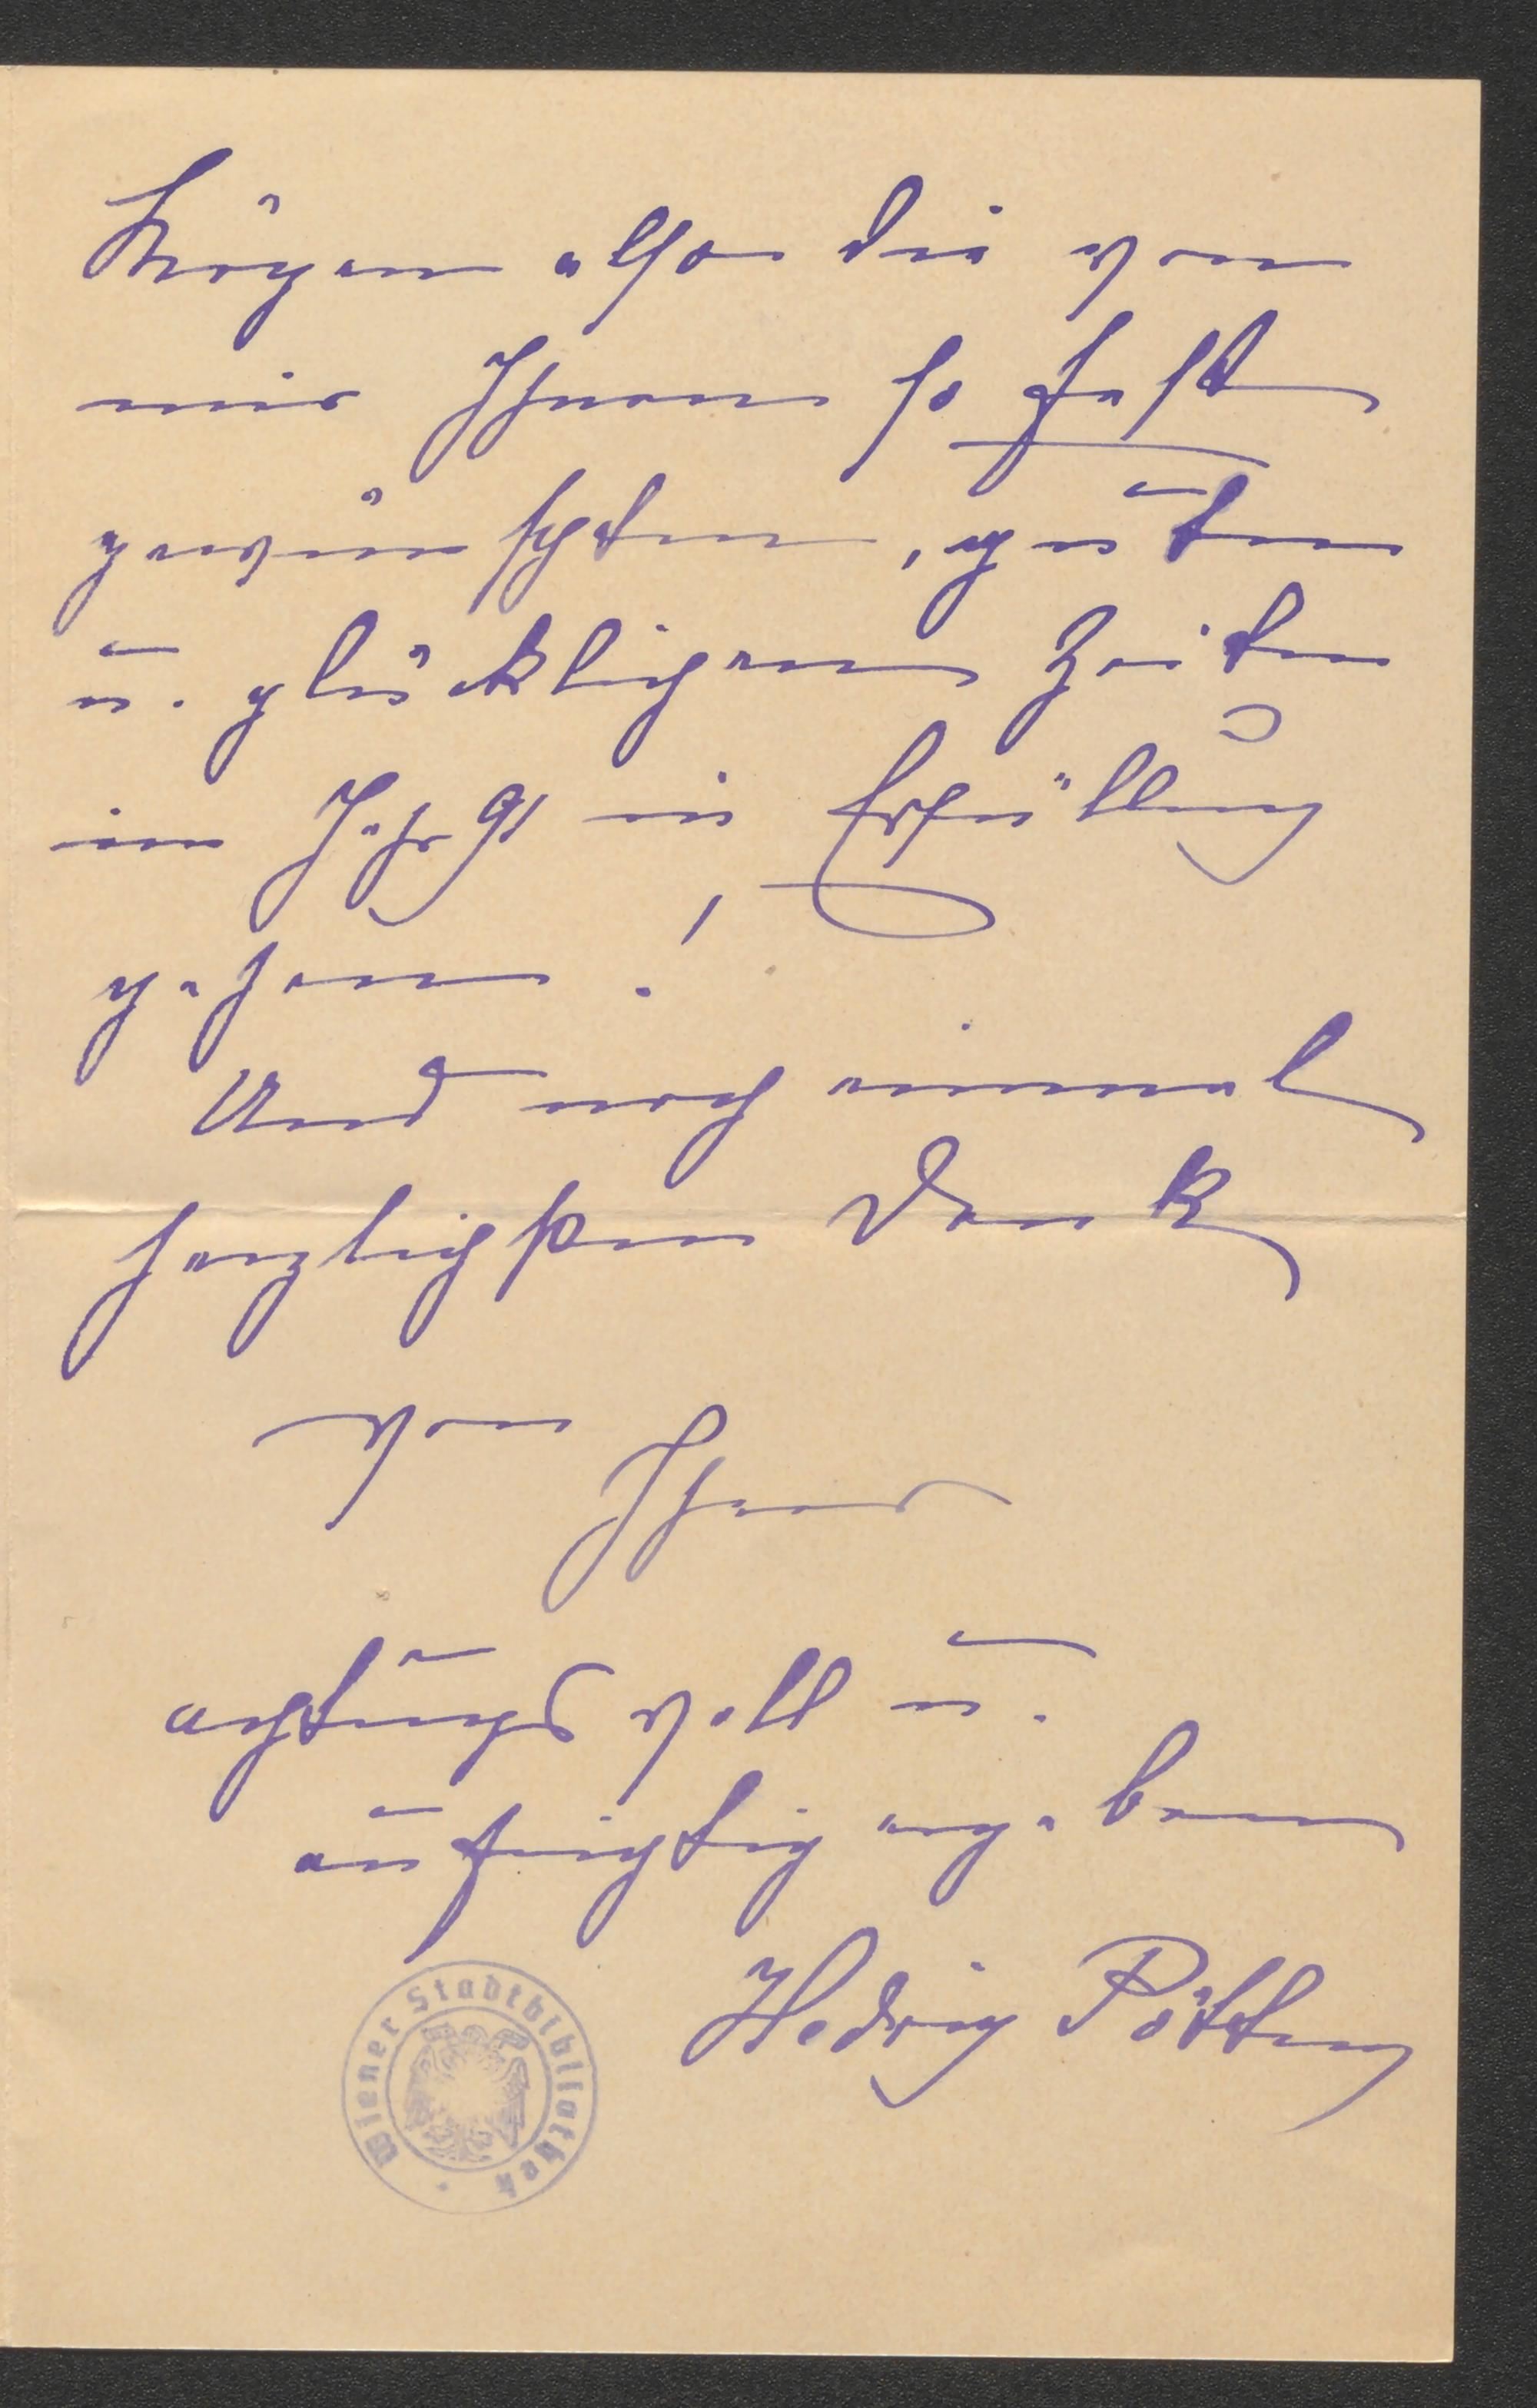 Mögen also die von
mir Ihnen so fest
gewünschten, guten
u. glücklichen Zeiten
im Jahr 91 in Erfüllung
gehen!
Und noch einmal
herzlichsten Dank
von
Ihrer
achtungsvoll u.
aufrichtig ergebenen
Hedwig Pötting
Wiener Stadtbibliothek